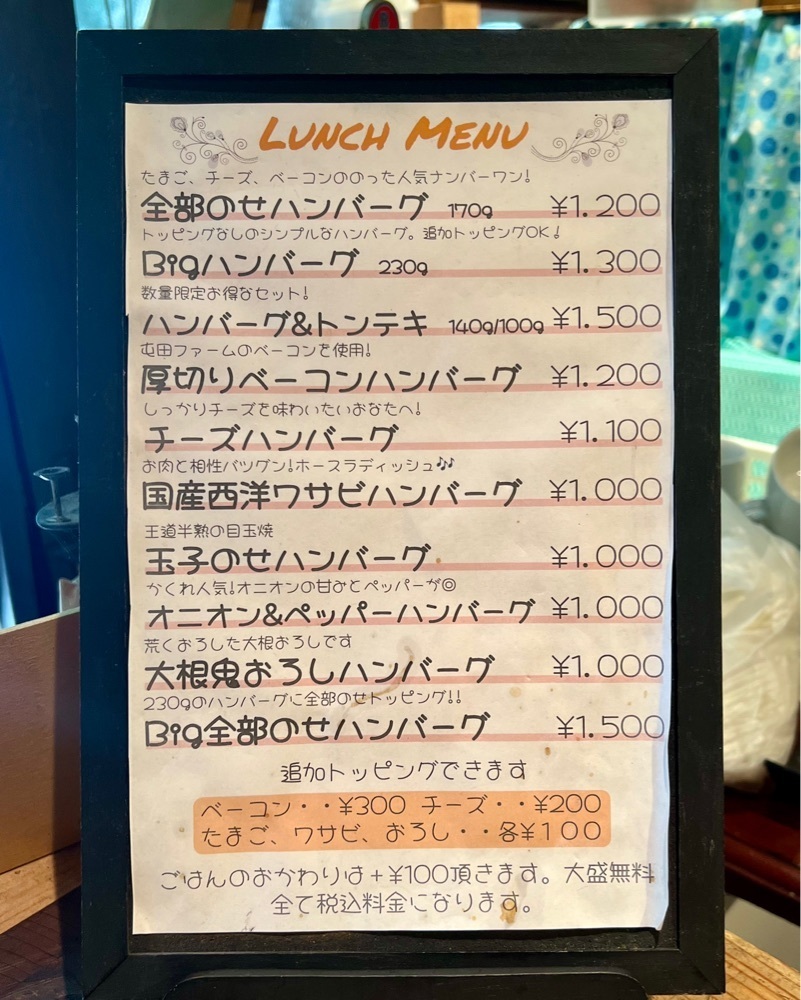 LUNCH MENU
たまご、チーズ、ベーコンののった人気ナンバーワン!
全部のせハンバーグ 170g ¥1.200
トッピングなしのシンプルなハンバーグ。追加トッピングOK!
Bigハンバーグ 230g ¥1.300
数量限定お得なセット!
ハンバーグ&トンテキ 140g/100g ¥1.500
屯田ファームのベーコンを使用!
厚切りベーコンハンバーグ ¥1.200
しっかりチーズを味わいたいあなたへ!
チーズハンバーグ ¥1.100
お肉と相性バツグン!ホースラディッシュ🎶
国産西洋ワサビハンバーグ ¥1.000
王道半熟の目玉焼
玉子のせハンバーグ ¥1.000
かくれ人気!オニオンの甘みとペッパーが◎
オニオン&ペッパーハンバーグ ¥1.000
荒くおろした大根おろしです
大根鬼おろしハンバーグ ¥1.000
230gのハンバーグに全部のせトッピング!!
Big全部のせハンバーグ ¥1.500
追加トッピングできます
ベーコン・・¥300 チーズ・・¥200
たまご、ワサビ、おろし・・各¥100
ごはんのおかわりは+¥100頂きます。大盛無料
全て税込料金になります。